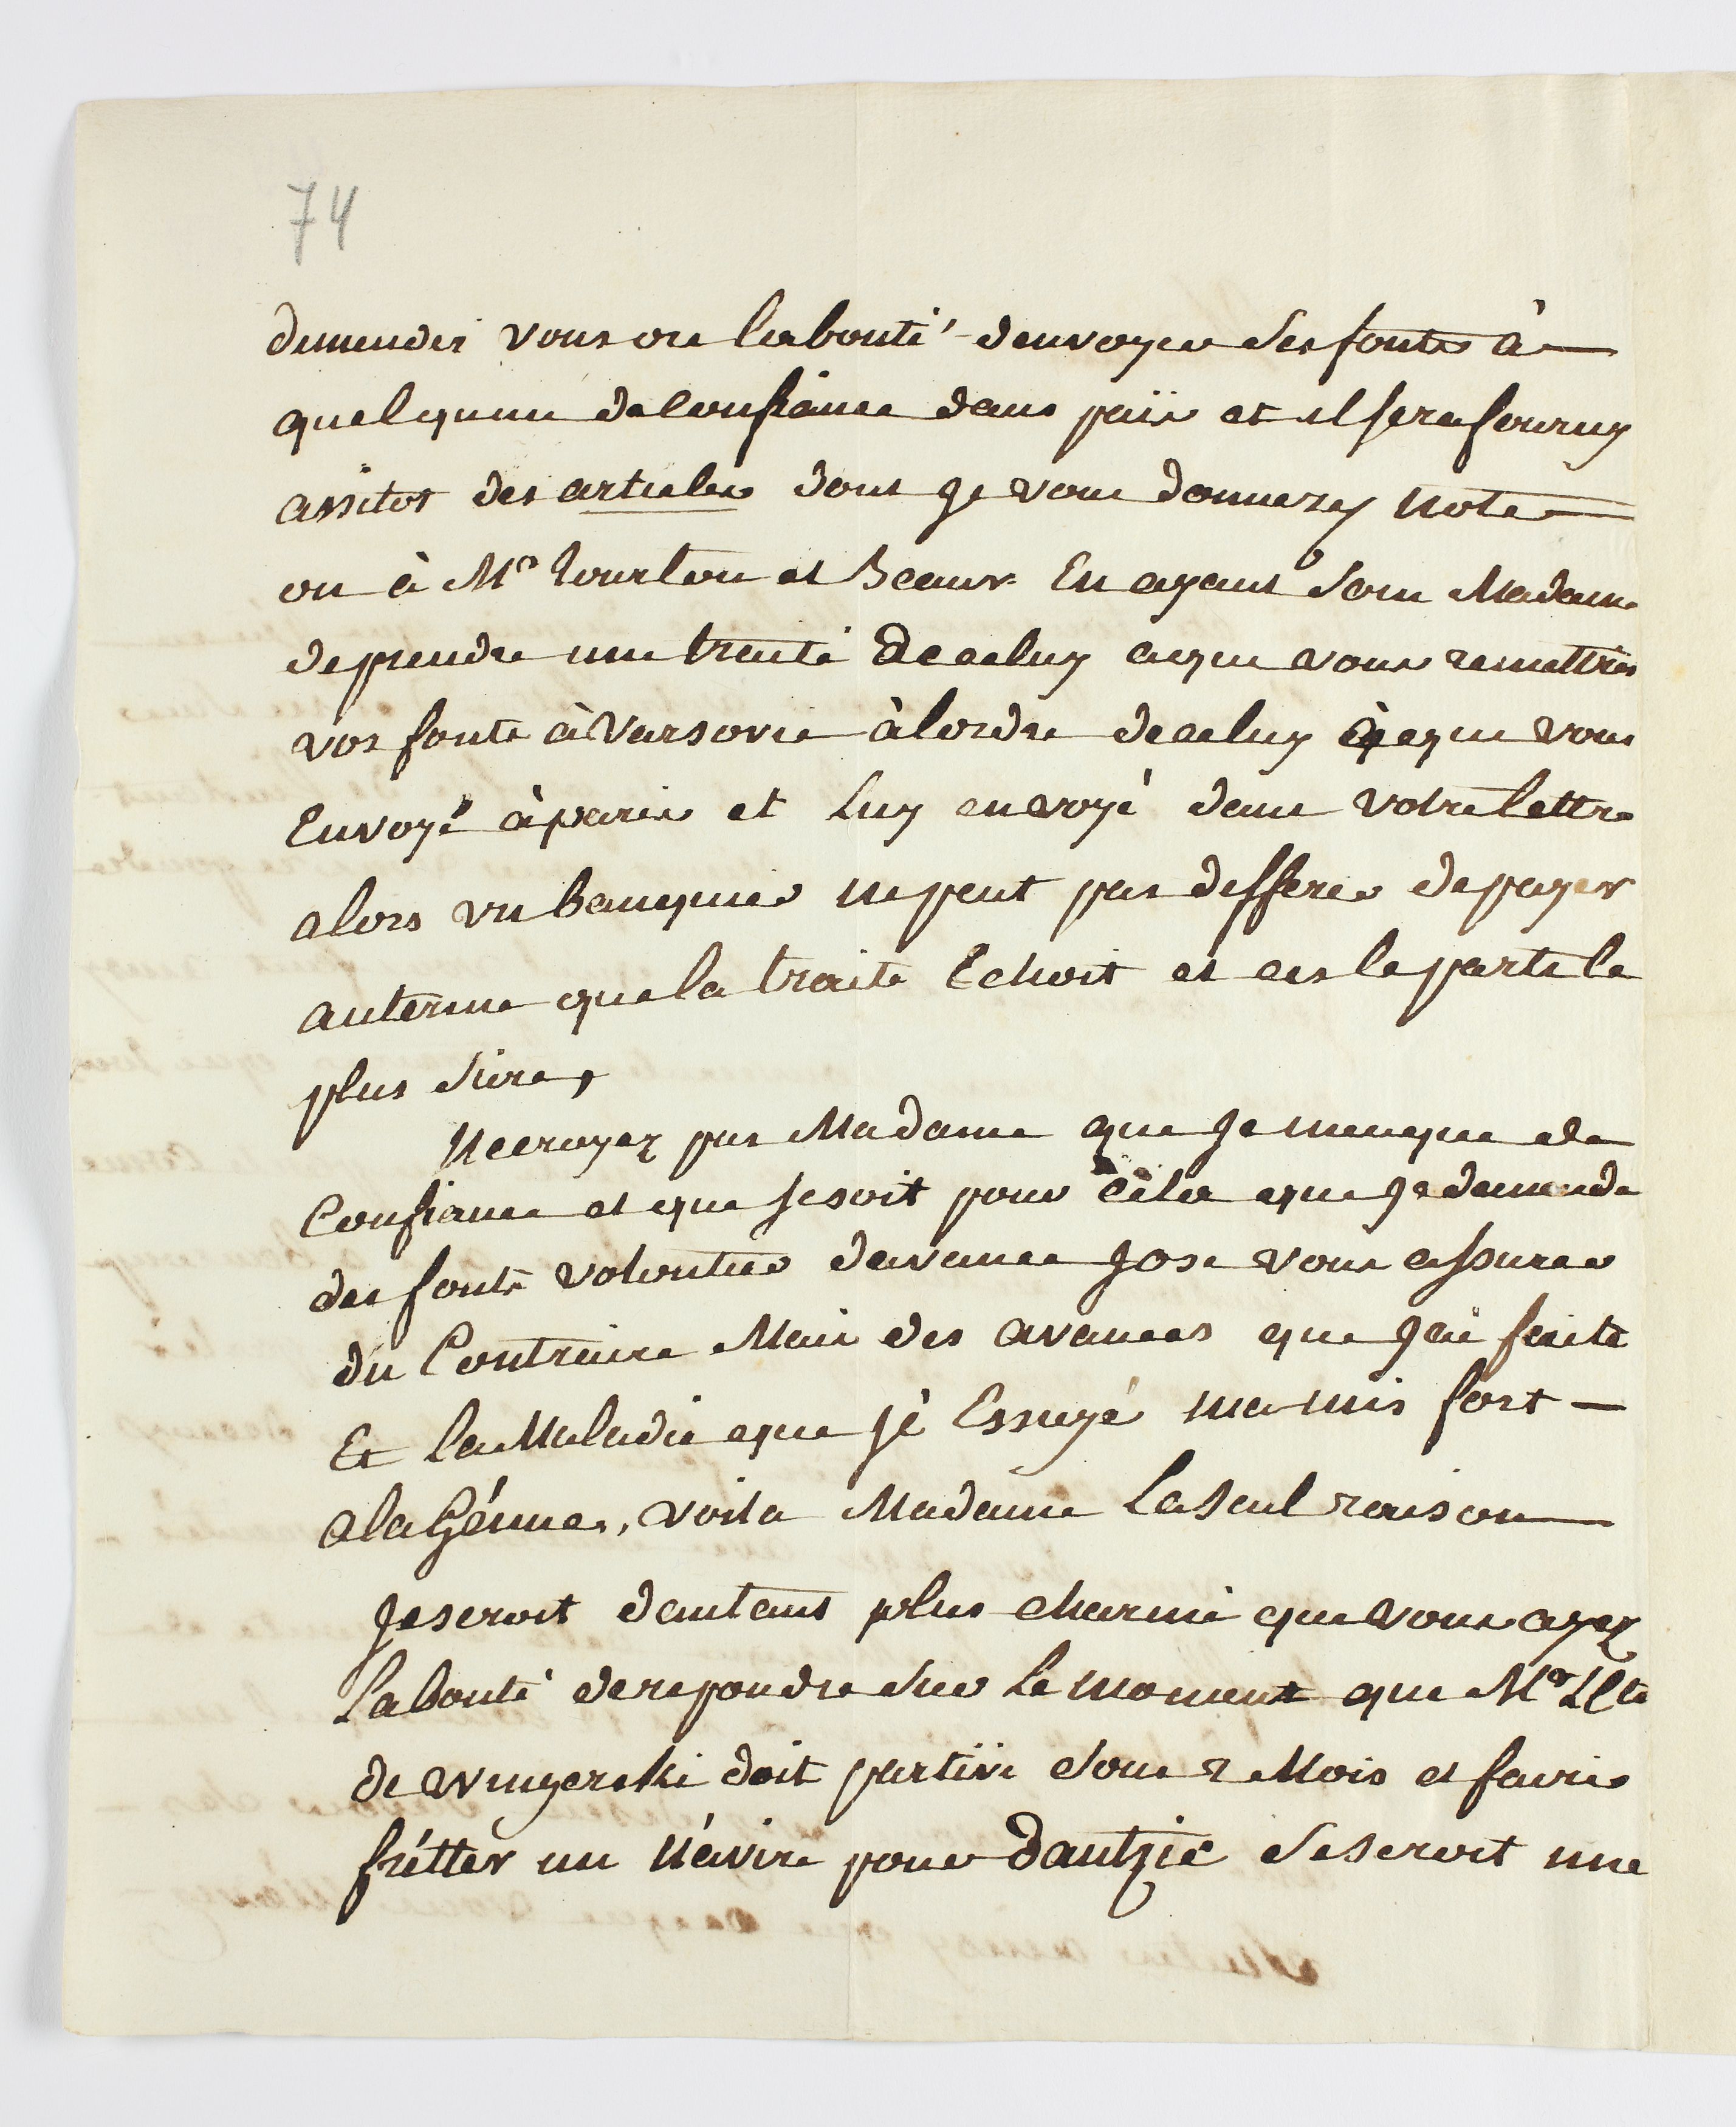 74
demender vous ore labonté d'envoyer des fonts à
quelqunn de Confiance dans païx et il sera fourny
assitot des articles dont Je vous donnerey note
ou à Mrs Tourton et Baur En ayant soin Madame
de prendre une traite de celuy aque vous remettres
vos fonts à Varsovie à lordre de celuy àque vous
Envoyé à paris et Luy envoyé dans votre lettre
alors un banquier ne peut pas differer de payer
auterme que la traite Echoit et ces le parti le
plus sure,
Ne croyez pas Madame que Je menque de
Confiance et que se soit pour cela que Je demende
des fonts volontiers davance Jose vous assurer
du Contraire Mais des avances que Jai faite
Et la Maladie que Jé Essuyé ma mis fort
ala Génne, voila Madame La seul raison
Je seroit dautant plus charmé que vous ayez
La bonté de repondre sur le moment que Mr Le Cte
de wingerski doit partire sous 2 Mois et faire
frétter un Navire pour Dantzic se seroit une